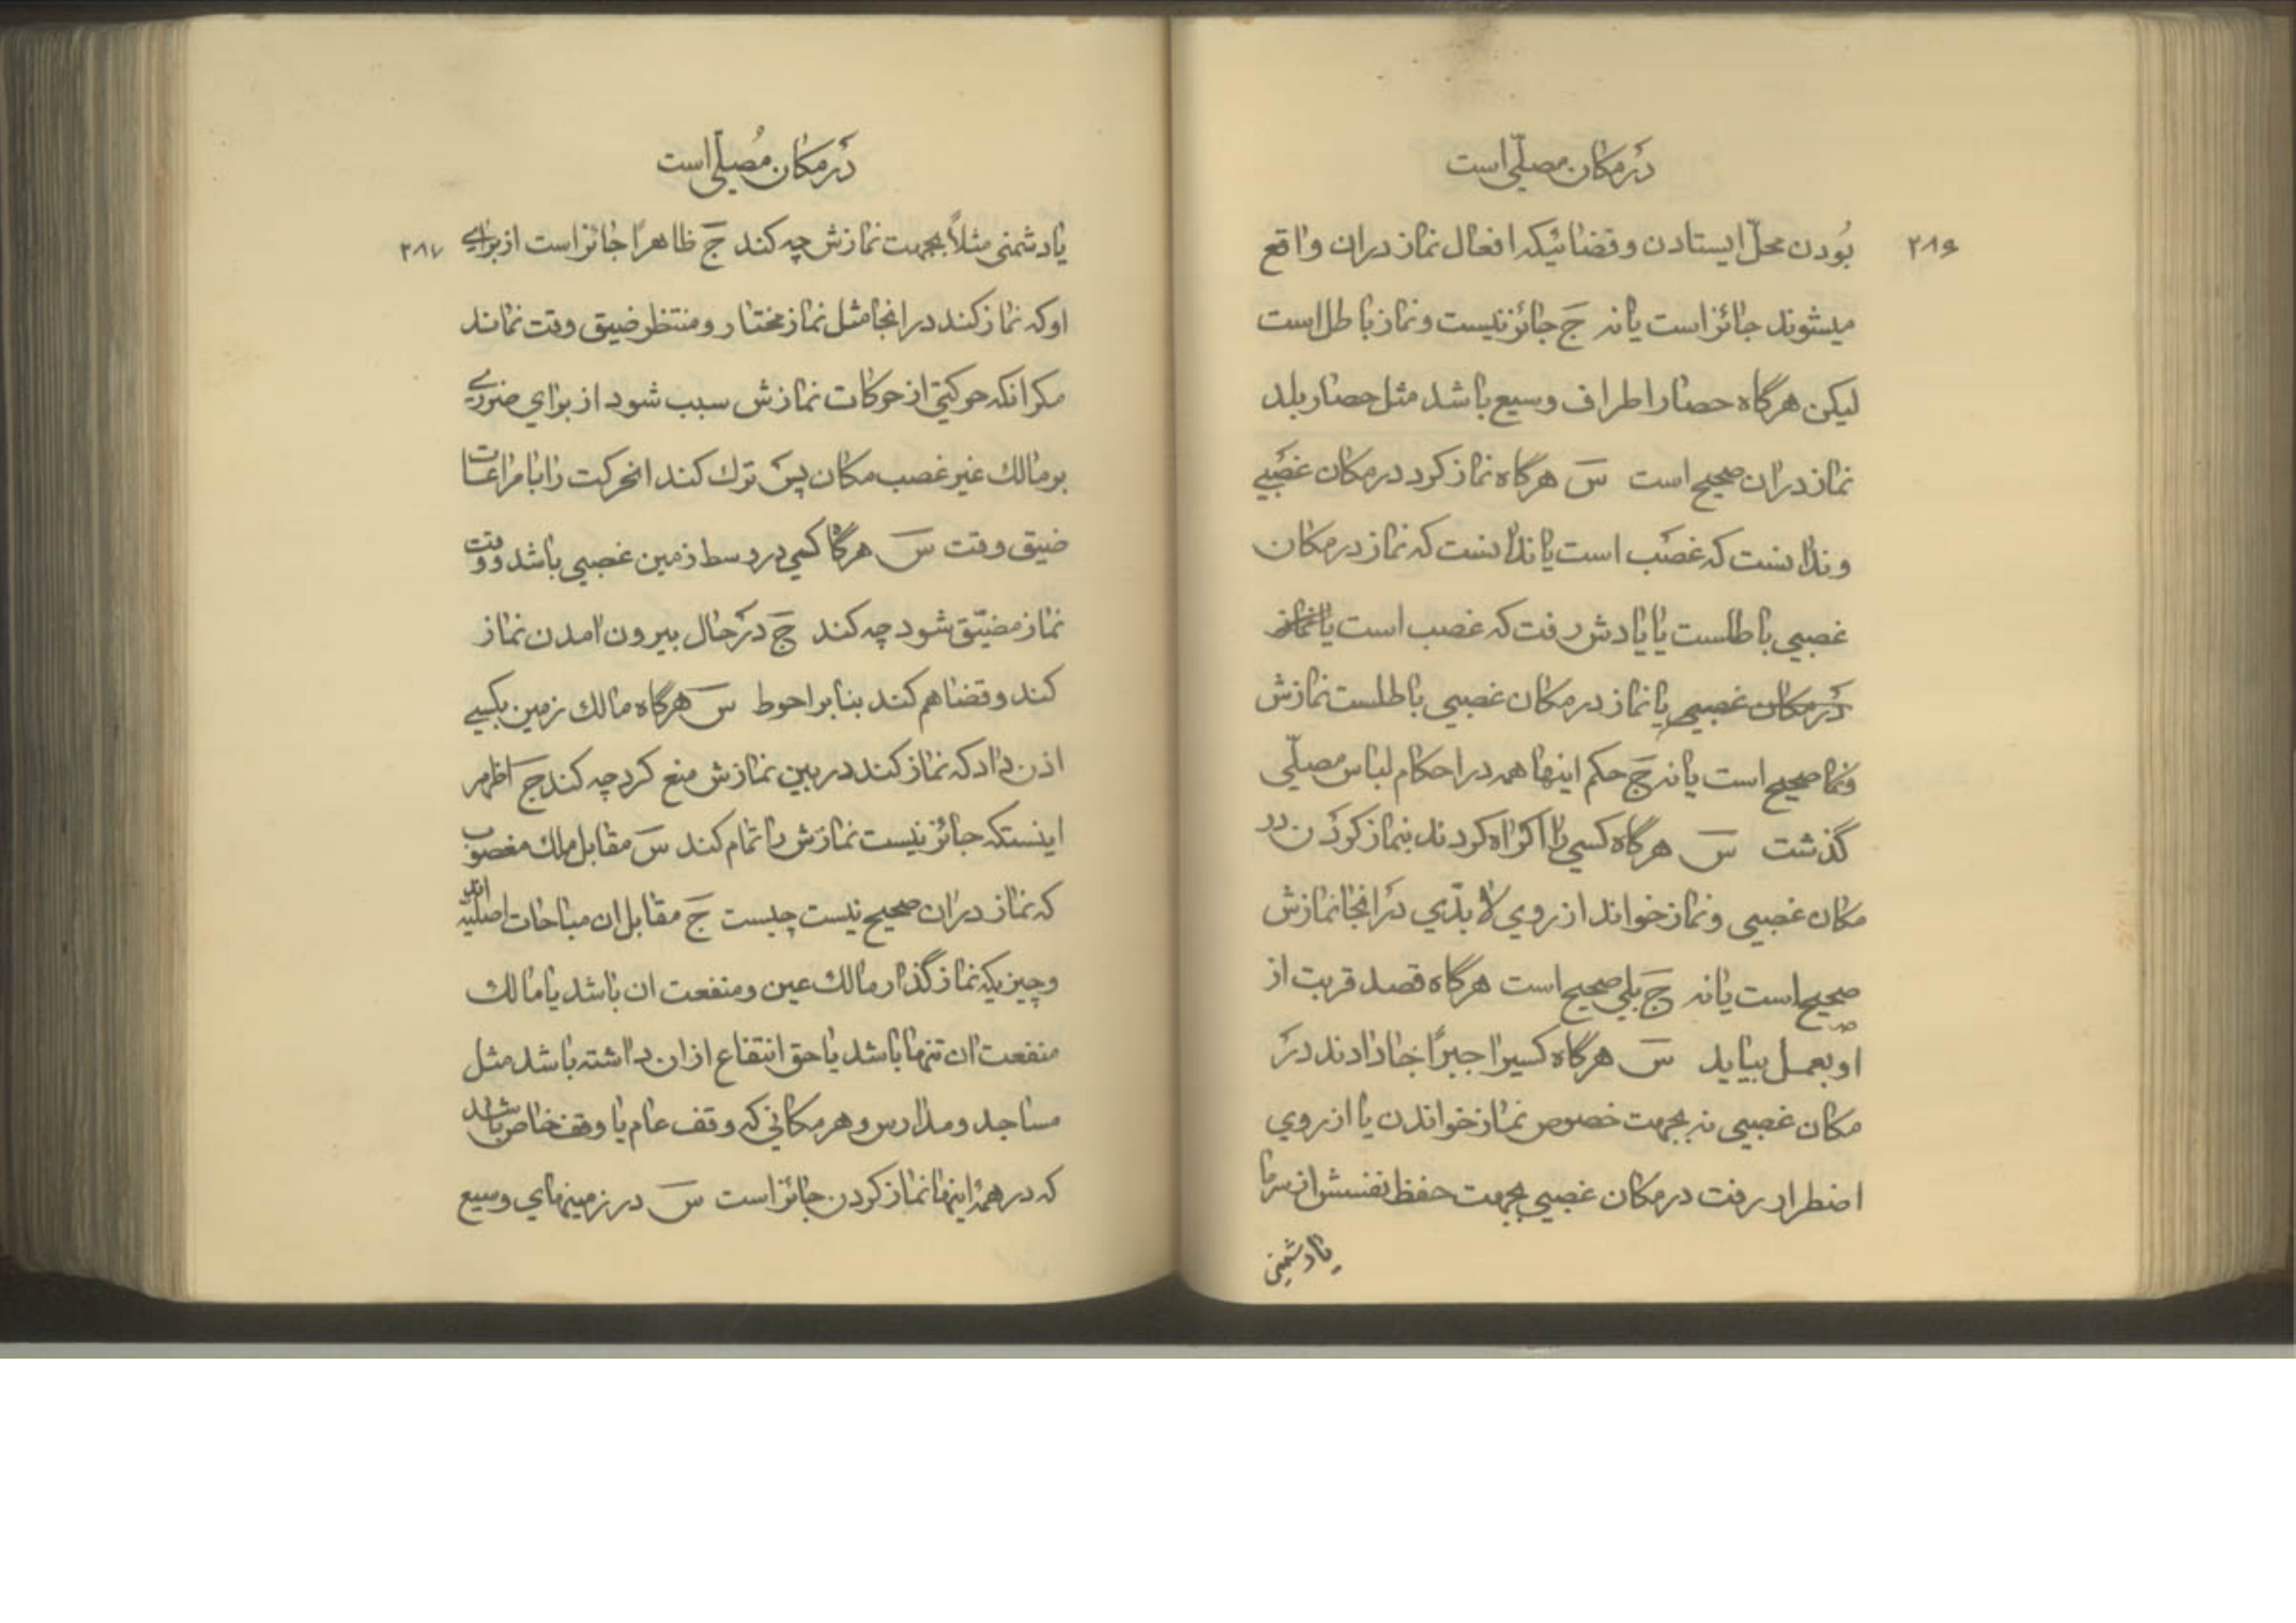 در مکان مصلّی است
۲۸۶
بُودن محلّ ایستادن و فضائیکه افعال نماز دران واقع
میشوند جائز است یا نه جَ جائز نیست و نماز باطل است
لیکن هرگاه حصار اطراف وسیع باشد مثل حصار بلد
نماز دران صحیح است سَ هرگاه نماز کرد در مکان غصبی
و ندانست که غصب است یا ندانست که نماز در مکان
غصبی باطلست یا یادش رفت که غصب است یا نماز
در مکان غصبی یا نماز در مکان غصبی باطلست نمازش
صحیح است یا نه جَ حکم اینها همه در احکام لباس مصلّی
گذشت سَ هرگاه کسی را اکراه کردند بنماز کردن در
مکان غصبی و نماز خواند از روی لا بدّی در انجا نمازش
صحیح است یا نه جَ بلی صحیح است هرگاه قصد قربت از
او بعمل بیاید سَ هرگاه کسیرا جبرًا جا دادند در
مکان غصبی نه بجهت خصوص نماز خواندن یا از روی
اضطرار رفت در مکان غصبی بجهت حفظ نفسش از سرما
یا دشمنی
در مکان مُصلّی است
۲۸۷
یا دشمنی مثلاً بجهت نمازش چه کند جَ ظاهرًا جائز است از برای
او که نماز کند در انجا مثل نماز مختار و منتظر ضیق وقت نماند
مکر انکه حرکتی از حرکات نمازش سبب شود از برای ضرری
بر مالك غیر غصب مکان پس ترك کند انحرکت را با مراعات
ضیق وقت سَ هرگاه کسی در وسط زمین غصبی باشد و وقت
نماز مضیّق شود چه کند جَ در حال بیرون امدن نماز
کند و قضا هم کند بنا بر احوط سَ هرگاه مالك زمین بکسی
اذن داد که نماز کند در بین نمازش منع کرد چه کند جَ اظهر
اینستکه جائز نیست نمازش را تمام کند سَ مقابل ملك مغصوب
که نماز دران صحیح نیست چیست جَ مقابل ان مباحات اصلیّه اند
و چیزیکه نماز گذار مالك عین و منفعت ان باشد یا مالك
منفعت ان تنها باشد یا حق انتفاع از ان داشته باشد مثل
مساجد و مدارس و هر مکانی که وقف عام یا وقف خاص باشد
که در همهٔ اینها نماز کردن جائز است سَ در زمینهای وسیع